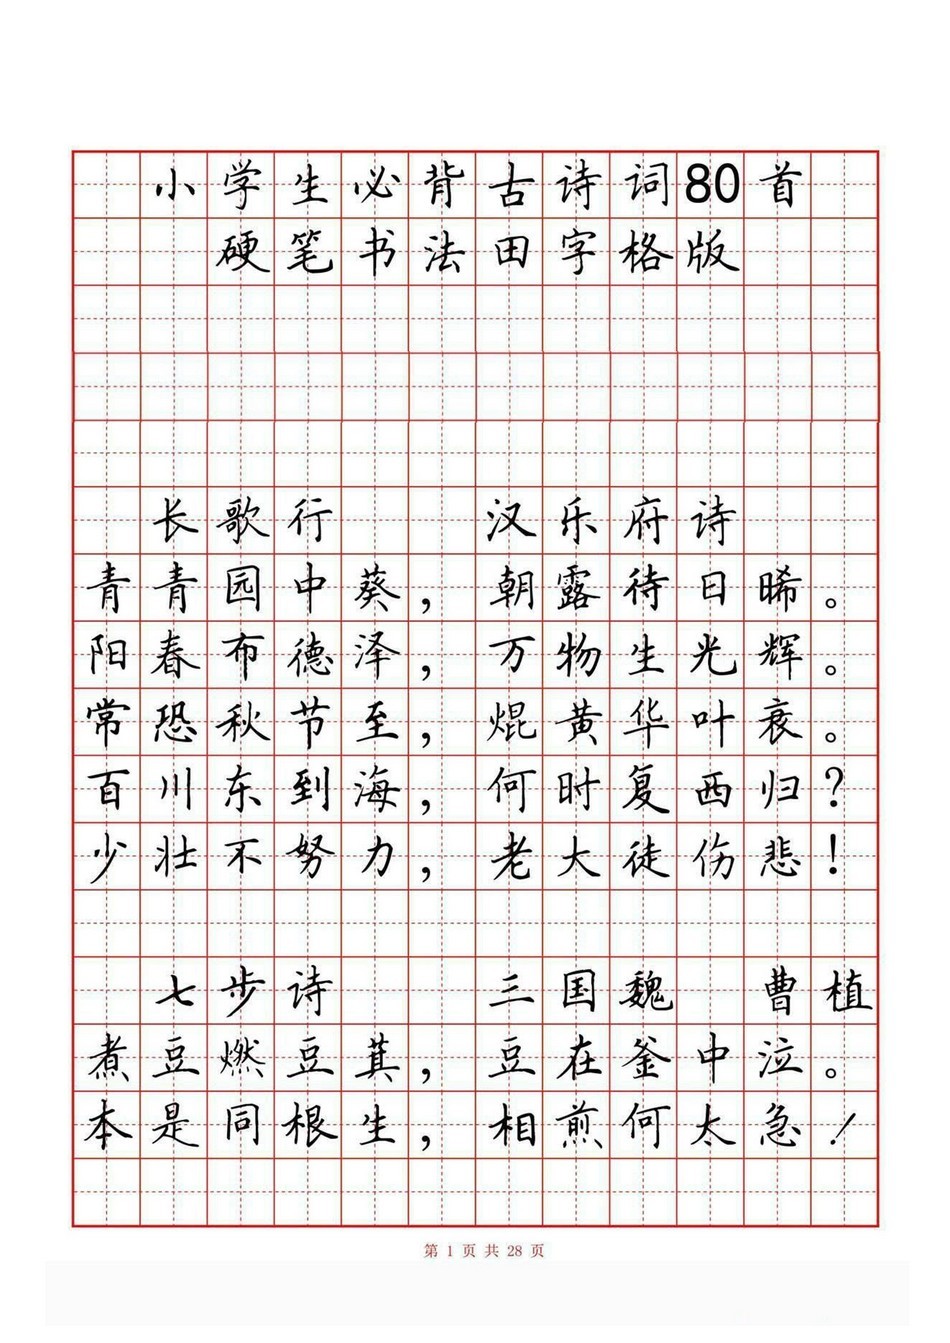 小学生必背古诗词80首
硬笔书法田字格版
长歌行 汉乐府诗
青青园中葵，朝露待日晞。
阳春布德泽，万物生光辉。
常恐秋节至，焜黄华叶衰。
百川东到海，何时复西归？
少壮不努力，老大徒伤悲！
七步诗 三国魏 曹植
煮豆燃豆萁，豆在釜中泣。
本是同根生，相煎何太急！
第 1 页 共 28 页